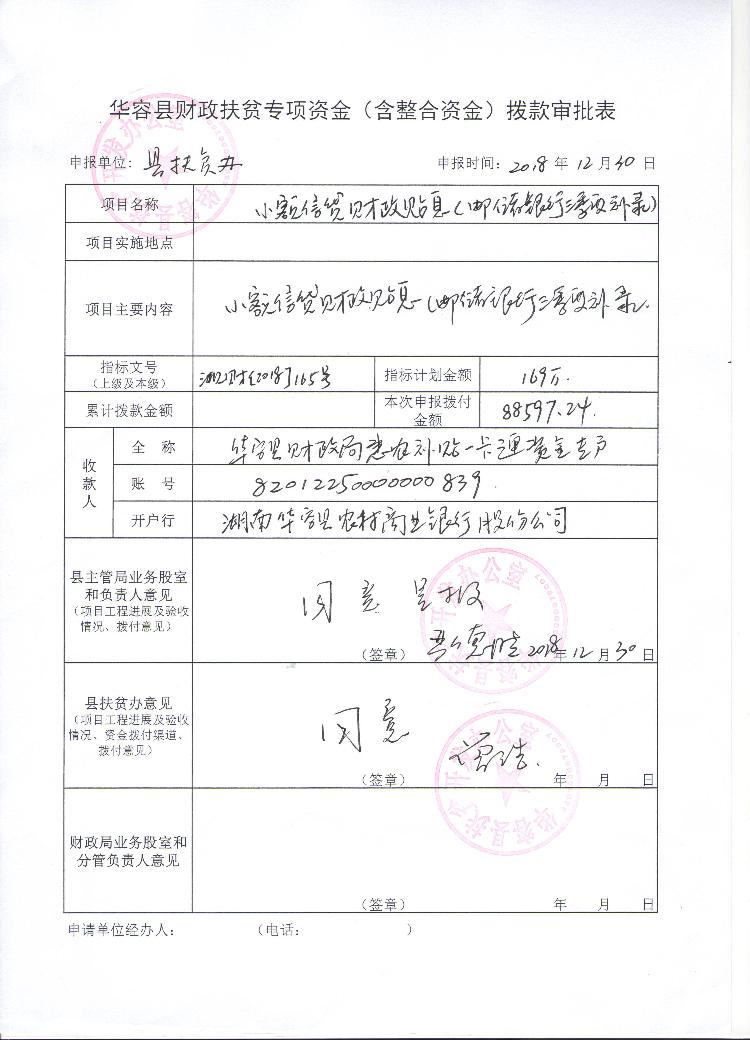 华容县财政扶贫专项资金（含整合资金）拨款审批表
申报单位：县扶贫办 申报时间：2018年12月30日
项目名称 小额信贷财政贴息(邮储银行三季度补录)
项目实施地点
项目主要内容 小额信贷财政贴息(邮储银行三季度补录)
指标文号
（上级及本级） 湘财〔2018〕165号 指标计划金额 169万.
累计拨款金额 本次申报拨付
金额 88597.24.
收款人
全 称 华容县财政局惠农补贴一卡通资金专户
账 号 82012250000000839
开户行 湖南华容县农村商业银行股份公司
县主管局业务股室
和负责人意见
（项目工程进展及验收
情况、拨付意见） 同意呈报
（签章） 2018年12月30日
县扶贫办意见
（项目工程进展及验收
情况、资金拨付渠道、
拨付意见） 同意
（签章） 年 月 日
财政局业务股室和
分管负责人意见
（签章） 年 月 日
申请单位经办人： （电话： ）